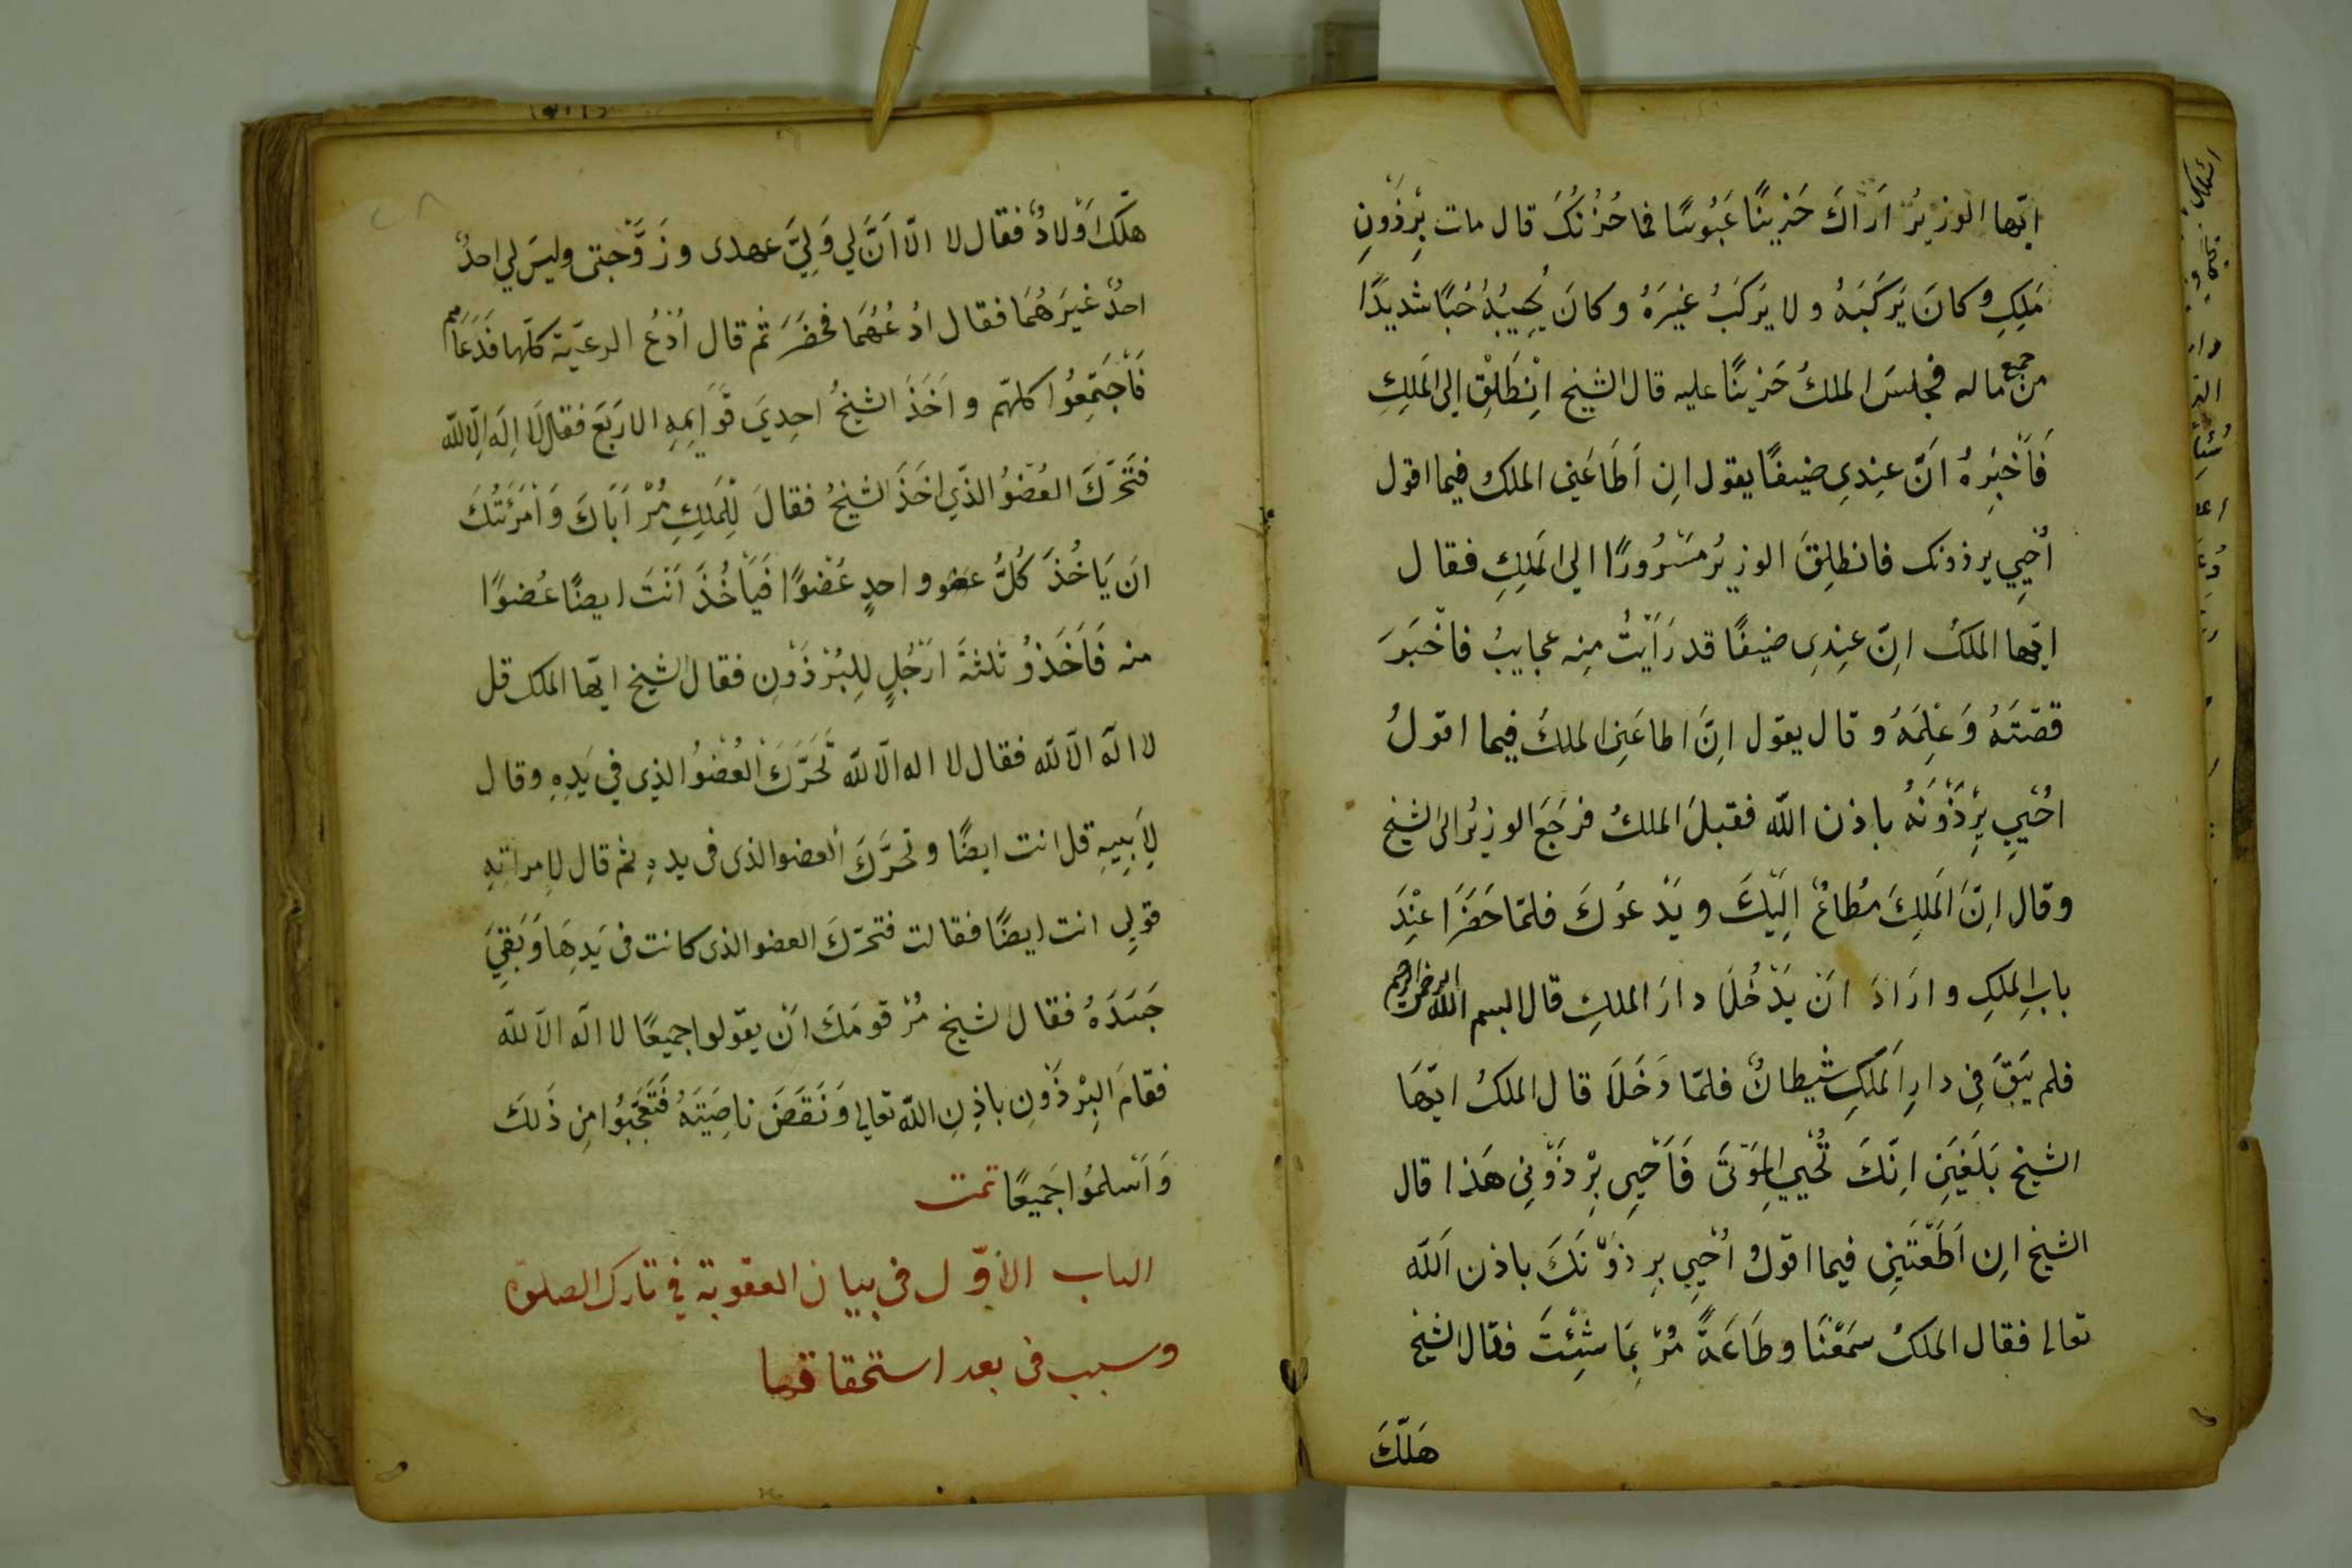 ايّها الوزيرُ اَرَاكَ حَزِينًا عَبُوسًا فما حُزْنُكَ قال مات بِرْذَوْنِ
مَلِكِ وكانَ يَرْكَبَهُ ولا يَركَبُ غيرَهُ وكانَ يُحِيبُهُ حُبّا شديدًا
من جميع ماله فجلسَ الملكُ حَزينًا عليه قال الشيخ اِنْطَلِقْ الى المَلِكِ
فَاَخْبِرهُ انَّ عِندِي ضيفًا يقول اِن اَطَاعَنِي الملك فيما اقول
اُحْيِي برذونك فانطلِقَ الوزيرُ مَسْرُورًا الى المَلِكِ فقال
ايّها الملكُ اِنّ عِندِى ضيفًا قد رَاَيْتُ مِنه عجايبُ فاَخْبَرَ
قصّتَهُ وَعِلْمَهُ وقال يقول اِنَّ اطاعَنِى الملكُ فيما اقولُ
اُحْيِي بِرْذَوْنَهُ باذن الله فقبلَ الملكُ فرجَعَ الوزيرُ الى الشيخ
وقال اِنّ المَلِكَ مُطاعٌ اِلَيْكَ ويَدْعُوكَ فلمّا حَضَرَا عِنْدَ
بابِ المَلِكِ وارَادَ اَنْ يَدْخُلَا دارَ الملكِ قال البسم الله الرحمن الرحيم
فلم يَبقَ فِي دارِ المَلِكِ شيطانٌ فلمّا دَخَلَا قال الملكُ ايّهَا
الشيخ بَلَغَنِي اِنّكَ تُحْيِي المَوْتَى فَاَحْيِى بِرْذَوْنِي هَذا قال
الشيخ اِن اَطَعْتَنِي فيما اقولُ اُحْيِي بِرذَوْنَكَ باذن الله
تعالى فقال الملكُ سَمْعًنَا وطَاعَةً مُرْ بِمَا شِئْتَ فقال الشيخ
هَلْلَكَ
هَلْلَكَ اَوْلادٌ فقال لا الّا اَنَّ لي وَلِيَّ عهدى وزَوَّجتى وليسَ لي احدٌ
احدٌ غيرَهُمَا فقال ادْعُهُمَا فحضَرَ ثم قال اُدْعُ الرعيّة كلّها فَدَعَاهم
فَاَجْتَمِعُوا كلهّم واَخَذَ الشيخُ احِديَ قَوَايِمِهِ الاربَعَ فقال لَا اِلَه اِلّا الله
فتَحَرّكَ العُضوُ الذّي اخَذَ الشيخُ فقالَ لِلْمَلِكِ مُرْ اَبَاكَ وَاَمْرَئَتُكَ
ان يَاخُذَ كُلُّ عضو واحدٍ عُضوًا فَيَأخُذَ اَنْتَ ايضًا عُضوًا
منه فَاَخَذوُ ثلثةَ ارْجُلٍ لِلبُرْذَوْنِ فقال الشيخ ايّها الملك قل
لا الهَ الّا الله فقال لا اله الّا الله تَحَرَّكَ العُضْوُ الذِى في يَدِهِ وقال
لِاَبِيهِ قل انت ايضًا وتحرَّكَ العضو الذى فى يدهِ ثم قال لاِمراتِهِ
قولِى انت ايضًا فقالت فتحرّكَ العضو الذى كانت فى يَدِهَا وَبَقِيَ
جَسَدَهُ فقال الشيخ مُرْ قومَكَ اَنْ يقولوا جميعًا لا الهَ الّا الله
فقامَ البِرْذَوْنِ باذِنِ الله تعالى وَنَقَضَ ناصِيَتَهُ فَتَعَجَّبُوا مِن ذَلكَ
وَاَسْلمُوا جَميعًا تمت
الباب الاوّل فى بيان العقوبة في تارك الصلوة
وسبب فى بعد استحقاقها